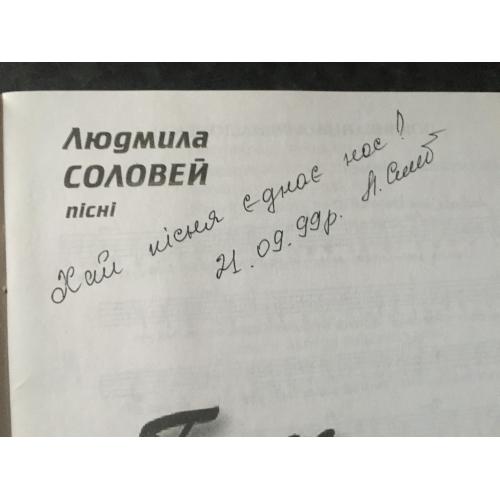 Людмила
СОЛОВЕЙ
пісні
Хай пісня єднає нас!
21.09.99р.